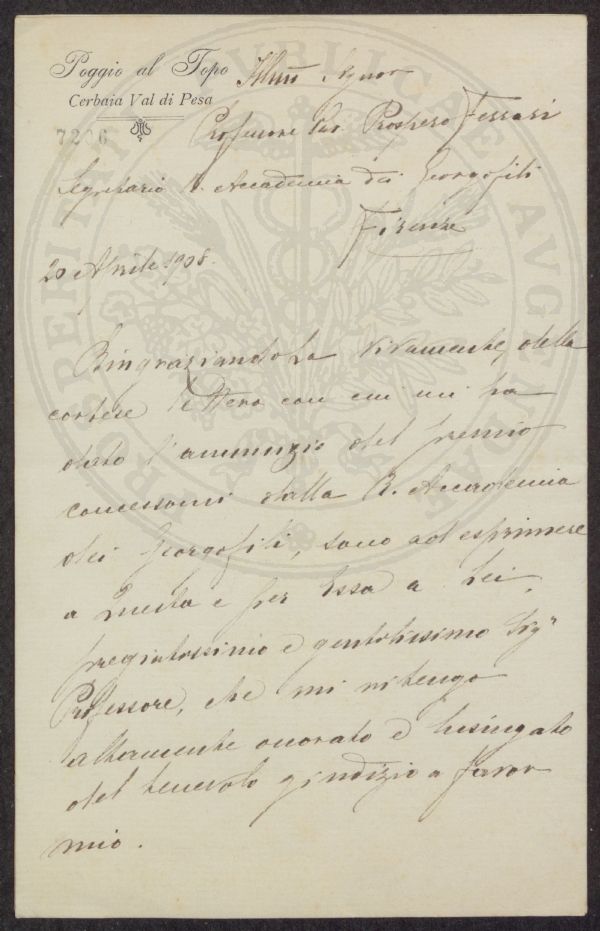 Poggio al Topo
Cerbaia Val di Pesa
7206
Illmo Signor
Professore Prospero Ferrari
Segretario R. Accademia dei Georgofili
Firenze
20 Aprile 1908.
RingraziandoLa vivamente della
cortese lettera con cui mi ha
dato l'annunzio del premio
concessomi dalla R. Accademia
dei Georgofili, sono ad esprimere
a Questa e per Essa a Lei,
pregiatissimo e gentilissimo Sigr
Professore, che mi ritengo
altamente onorato e lusingato
del benevolo giudizio a favor
mio.
PROSPERITATI PUBLICAE AUGENDAE